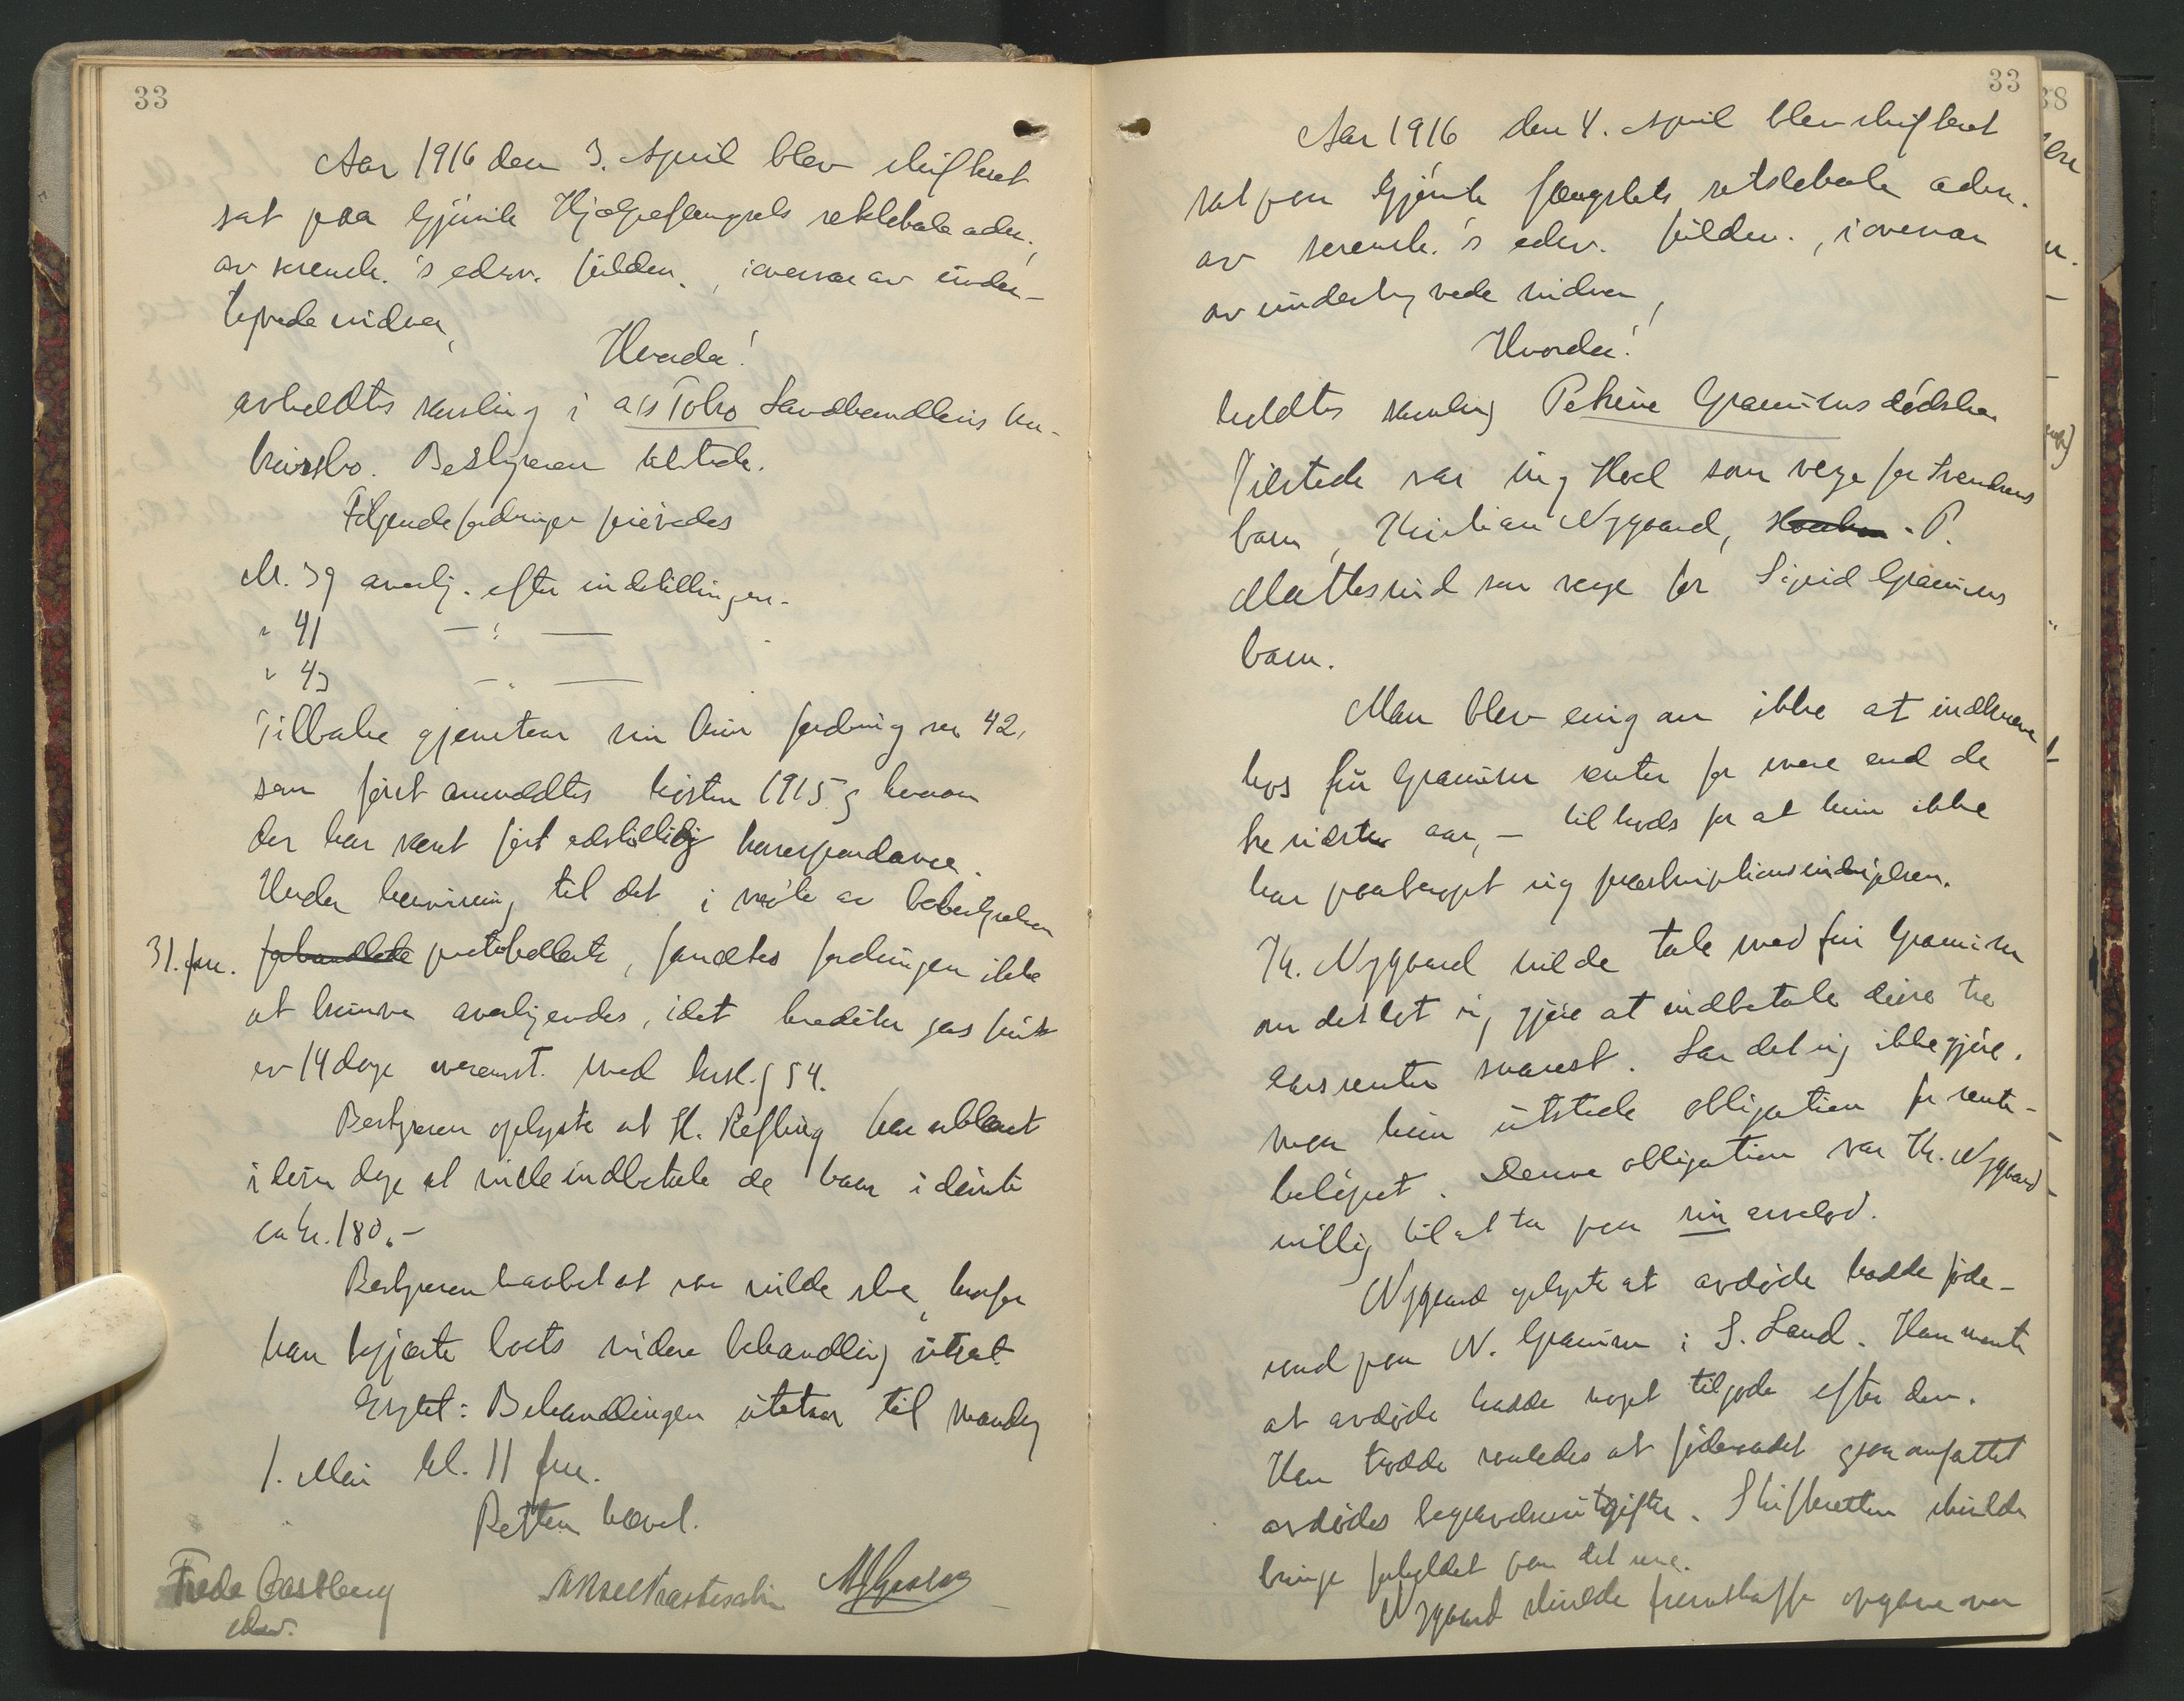 33
Aar 1916 den 3. April blev skifteret
sat paa Gjøvik Hjælpefængsels retslokale adm.
av sorensk.'s edsv. fuldm., i overvær av under-
tegnede vidner,
Hvorda!
avholdtes samling i a/s Toho Landhandleris kon-
kursbo. Bestyreren tilstede.
Følgende fordringer prøvedes
Nr. 39 anerkj. efter indstillingen.
" 41 — : —
" 43 — " —
Tilbake gjenstaar nu kun fordring nr 42,
som først anmeldtes høsten 1915 og hvorom
der har været ført adskillig korrespondance.
Under henvisning til det i møte av bobestyrelsen
31. f.m. forhandlede protokollerte, fandtes fordringen ikke
at kunne anerkjendes, idet kreditor gas frist
en 14 dage overenst. med kksl. § 54.
Bestyreren oplyste at H. Refling har erklært
i disse dage at ville indbetale de baar idømte
ca kr. 180,-
Bestyreren haabet at saa vilde ske, hvorfor
han begjærte boets videre behandling utsat
Eragtet: Behandlingen utstaar til mandag
1. Mai kl. 11 fm.
Retten hævet.
Frede Castberg
edsv.
33
Aar 1916 den 4. April blev skifteret
sat paa Gjøvik fængslets retslokale adm.
av sorensk.'s edsv. fuldm., i overvær
av undertegnede vidner,
Hvorda!
holdtes samling Petrine Graminsdødsbo
Tilstede var ing Hoel som verge for Svendsens
barn, Kristian Nygaard, P.
Mattesrud som verge for Sigrid Gramins
barn.
Man blev enig om ikke at indkræve
hos fru Gramin renter for mere end de
tre sidste aar, - tiltrods for at hun ikke
har paaberopt sig præskriptionsindsigelsen.
Kr. Nygaard vilde tale med fru Gramin
om det lot sig gjøre at indbetale disse tre
aars renter snarest. Lar det sig ikke gjøre,
maa hun utstede obligation for rente-
beløpet. Denne obligation var Kr. Nygaard
villig til at ta paa sin arvelod.
Nygaard oplyste at avdøde hadde føde-
raad paa N. Gramin i S. Land. Han mente
at avdøde hadde noget tilgode efter den.
Han trodde saaledes at føderaadet ogsaa omfattet
avdødes begravelsesutgifter. Skifteretten skulde
bringe forholdet paa det rene.
Nygaard skulde fremskaffe opgave over